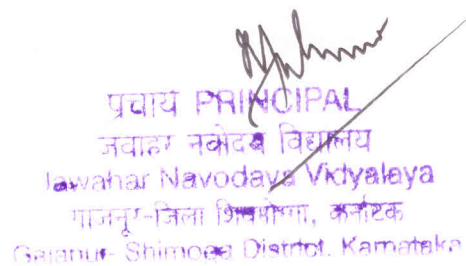 प्राचार्य PRINCIPAL
जवाहर नवोदय विद्यालय
Jawahar Navodaya Vidyalaya
गाजनूर-जिला शिवमोग्गा, कर्नाटक
Gajanur- Shimoga District. Karnataka